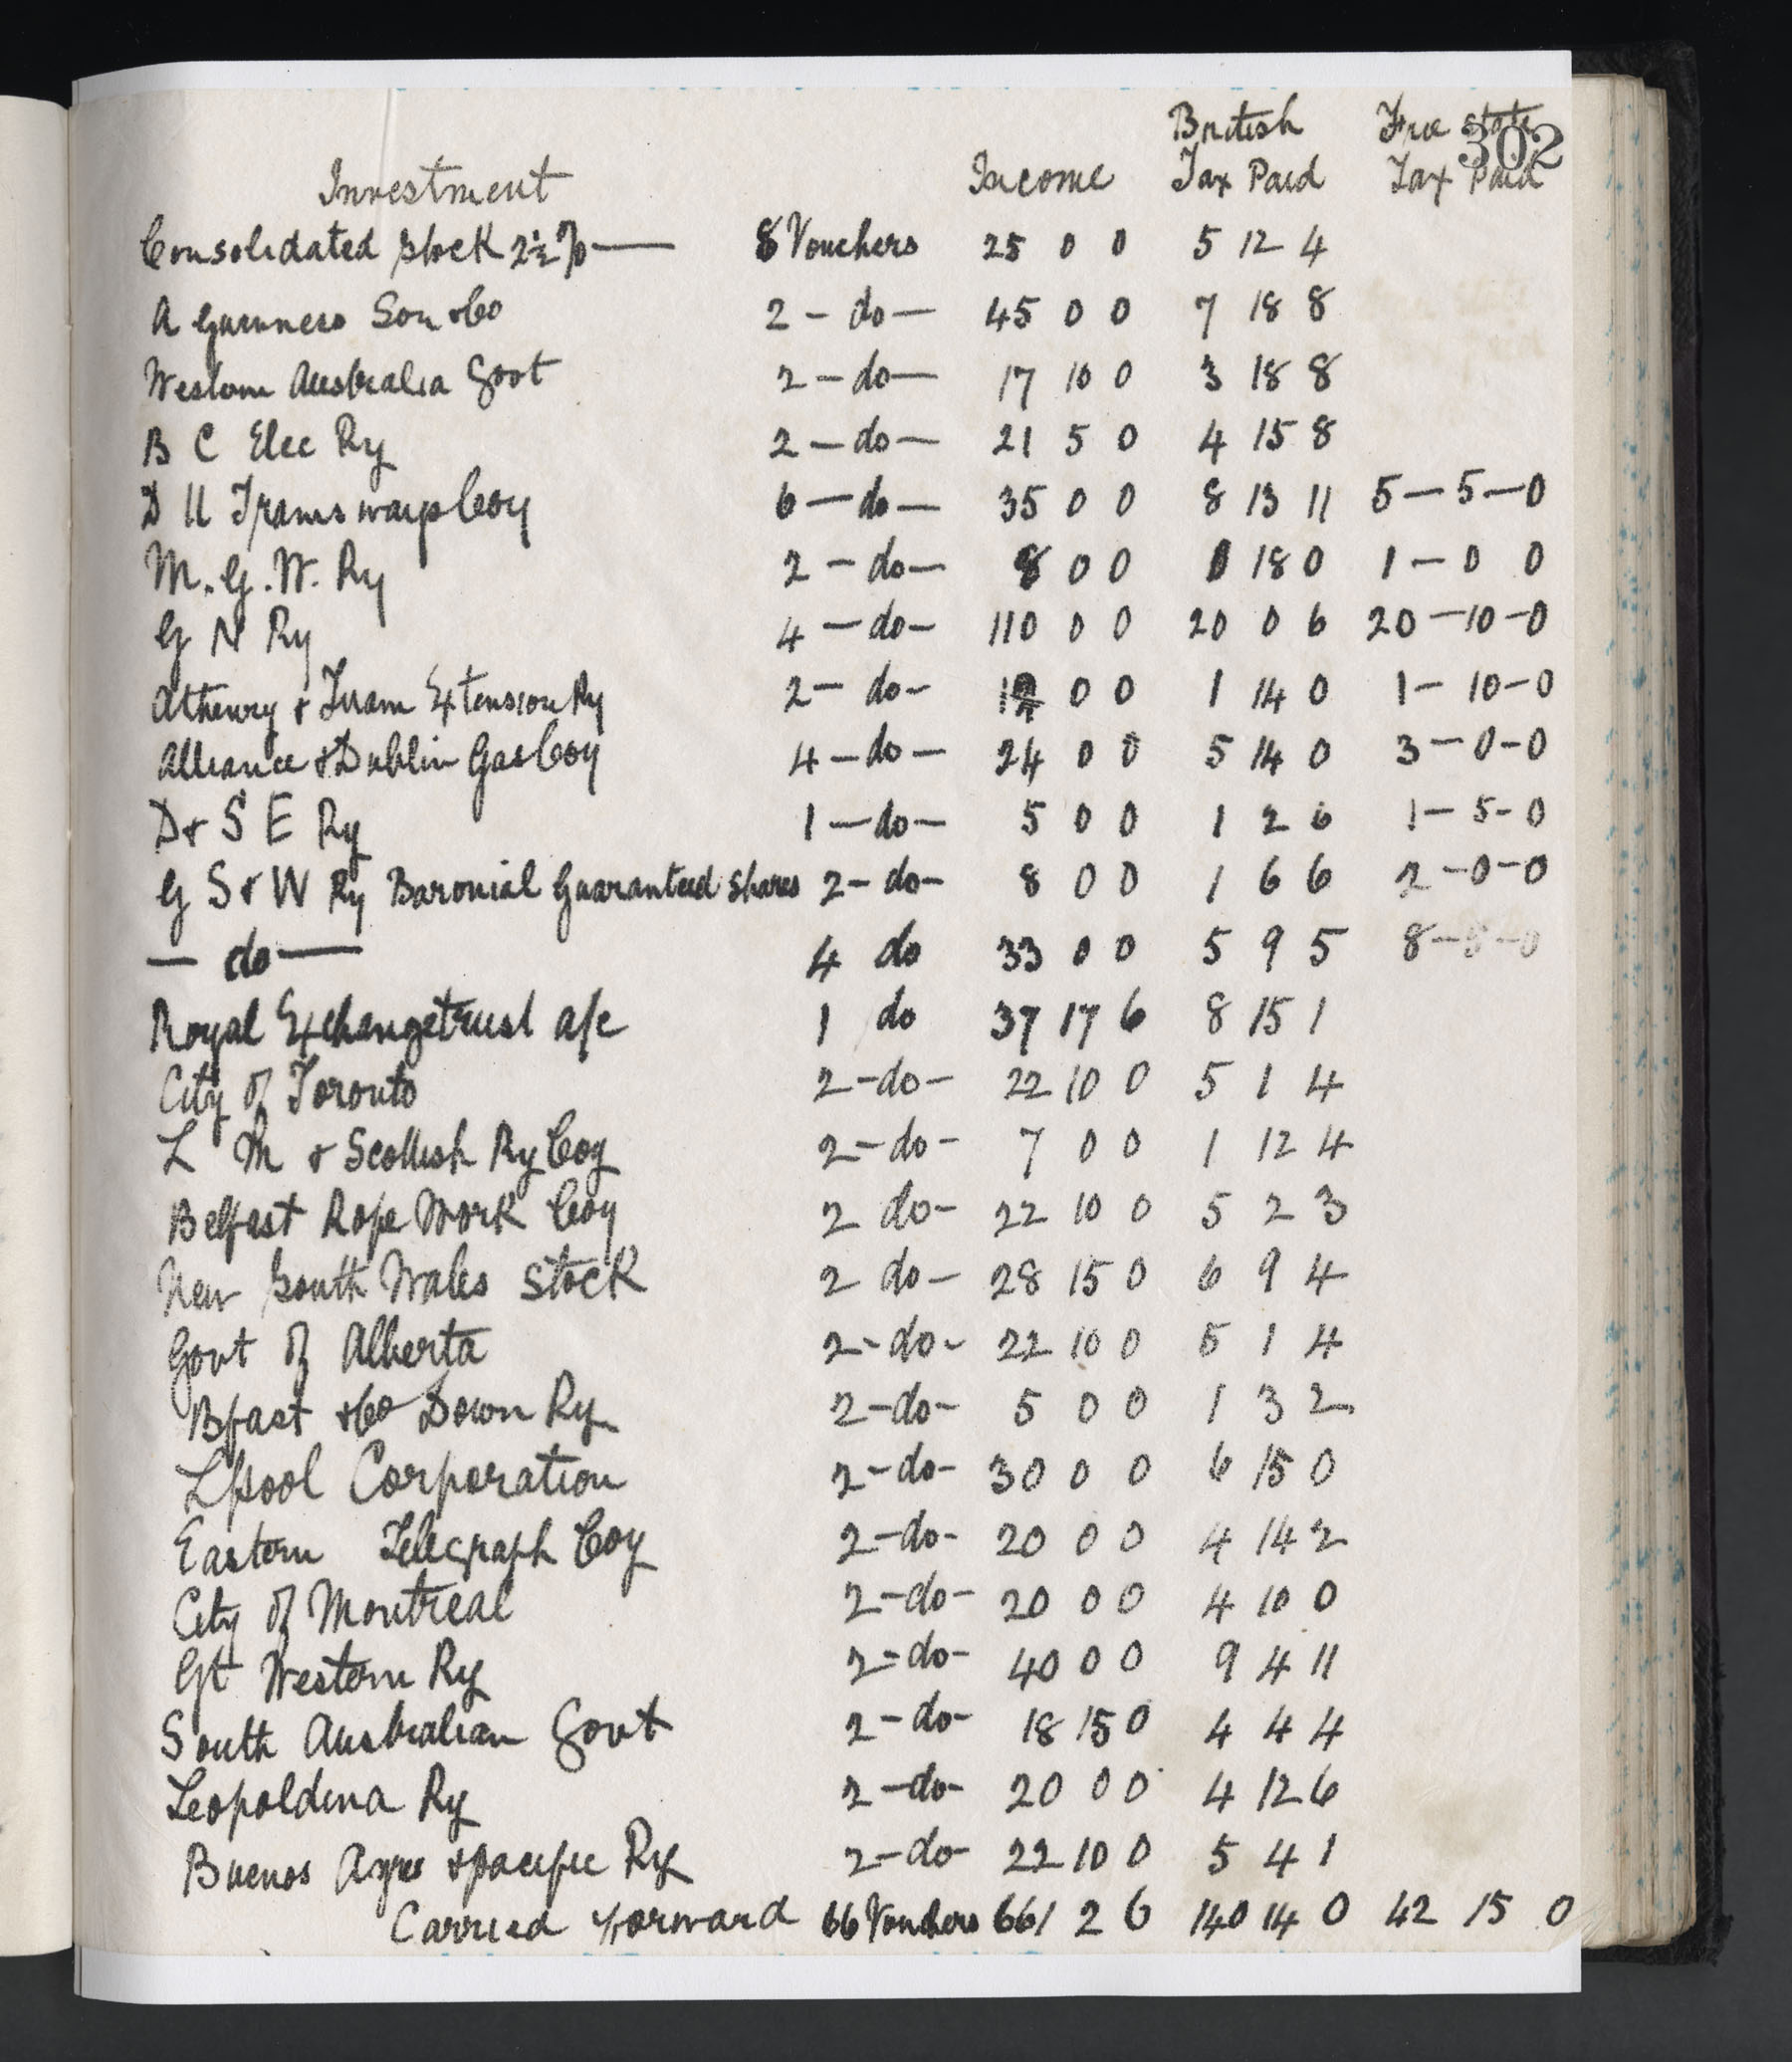 British Free State
302
Investment Income Tax Paid Tax Paid
Consolidated Stock 2½% — 8 Vouchers 25 0 0 5 12 4
A Guinness Son & Co 2 — do — 45 0 0 7 18 8
Western Australia Govt 2 — do — 17 10 0 3 18 8
B C Elec Ry 2 — do — 21 5 0 4 15 8
D U Tramsways Coy 6 — do — 35 0 0 8 13 11 5 — 5 — 0
M. G. W. Ry 2 — do — 8 0 0 18 0 1 — 0 0
G N Ry 4 — do — 110 0 0 20 0 6 20 — 10 — 0
Athenry & Tuam Extension Ry 2 — do — 0 0 1 14 0 1 — 10 — 0
Alliance & Dublin Gas Coy 4 — do — 24 0 0 5 14 0 3 — 0 — 0
D & S E Ry 1 — do — 5 0 0 1 2 6 1 — 5 — 0
G S & W Ry Baronial Guaranteed Shares 2 — do — 8 0 0 1 6 6 2 — 0 — 0
— do — 4 do 33 0 0 5 9 5 8 — 5 — 0
Royal Exchange trust a/c 1 do 37 17 6 8 15 1
City of Toronto 2 — do — 22 10 0 5 1 4
L M & Scottish Ry Coy 2 — do — 7 0 0 1 12 4
Belfast Rope Work Coy 2 do — 22 10 0 5 2 3
New South Wales Stock 2 do — 28 15 0 6 9 4
Govt of Alberta 2 — do — 22 10 0 5 1 4
Bfast & Co Down Ry 2 — do — 5 0 0 1 3 2
Lpool Corporation 2 — do — 30 0 0 6 15 0
Eastern Telegraph Coy 2 — do — 20 0 0 4 14 2
City of Montreal 2 — do — 20 0 0 4 10 0
Gt Western Ry 2 — do — 40 0 0 9 4 11
South Australian Govt 2 — do — 18 15 0 4 4 4
Leopoldina Ry 2 — do — 20 0 0 4 12 6
Buenos Ayres & pacific Ry 2 — do — 22 10 0 5 4 1
Carried forward 66 Vouchers 661 2 6 140 14 0 42 15 0